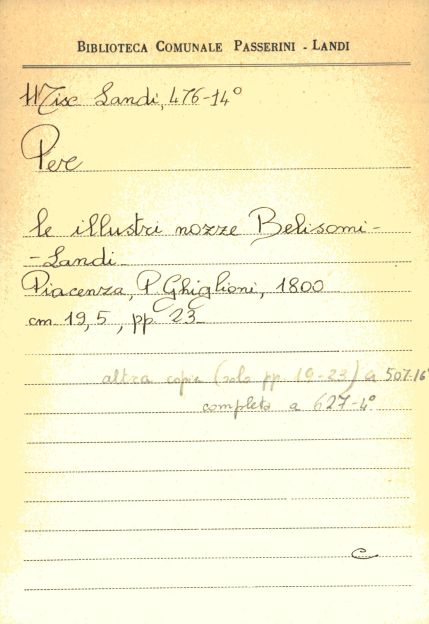 BIBLIOTECA COMUNALE PASSERINI - LANDI
Misc Landi, 476-14°
Per
le illustri nozze Belisomi-
-Landi
Piacenza, P. Ghiglioni, 1800
cm 19,5, pp. 23
altra copia (solo pp. 19-23) a 507-16°
completo a 627-4°
C